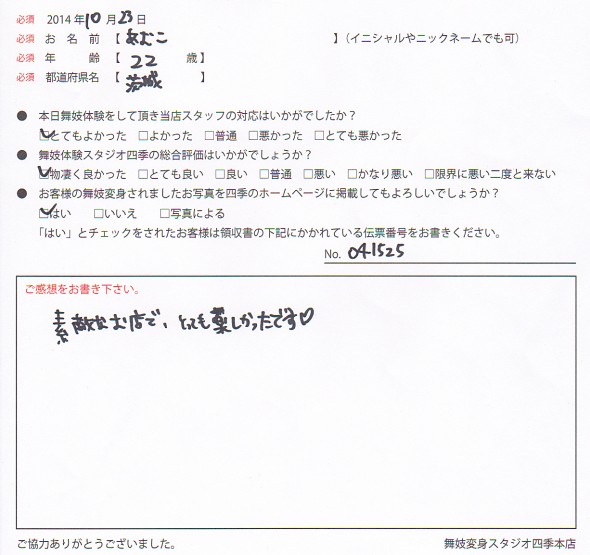 必須 2014年10月23日
必須 お名前【あむこ】(イニシャルやニックネームでも可)
必須 年齢【22歳】
必須 都道府県名【茨城】
● 本日舞妓体験をして頂き当店スタッフの対応はいかがでしたか?
☑とてもよかった □よかった □普通 □悪かった □とても悪かった
● 舞妓体験スタジオ四季の総合評価はいかがでしょうか?
☑物凄く良かった □とても良い □良い □普通 □悪い □かなり悪い □限界に悪い二度と来ない
● お客様の舞妓変身されましたお写真を四季のホームページに掲載してもよろしいでしょうか?
☑はい □いいえ □写真による
「はい」とチェックをされたお客様は領収書の下記にかかれている伝票番号をお書きください。
No. 041525
ご感想をお書き下さい。
素敵なお店で、とっても楽しかったです♡
ご協力ありがとうございました。 舞妓変身スタジオ四季本店